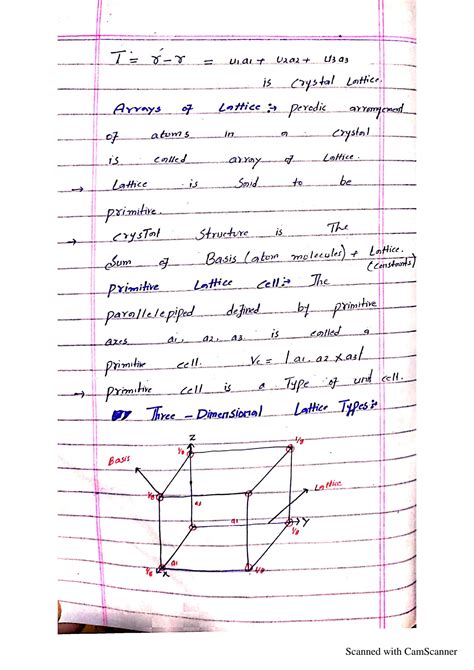 T = r' - r = u1a1 + u2a2 + u3a3
is crystal Lattice.
Arrays of Lattice :→ perodic arrangement
of atoms in a crystal
is called array of Lattice.
→ Lattice is Said to be
primitive.
→ crysTal Structure is The
Sum of Basis (atom molecules) + Lattice.
(constants)
primitive Lattice cell :→ The
parallelepiped defined by primitive
axes a1, a2, a3 is called a
primitive cell. Vc = |a1. a2 x a3|
→ primitive cell is a Type of unit cell.
Three - Dimensional Lattice Types :
Z
1/8
1/8
Basis
Lattice
1/8
a3
a2
Y
1/8
a1
1/8
X
1/8
Scanned with CamScanner